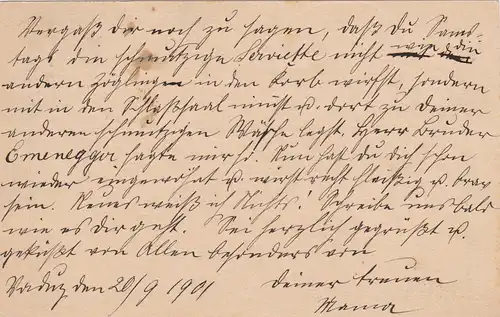 Vergaß dir noch zu sagen, daß Du Sams-
tags die schmutzige Serviette nicht wie die
andern Zöglinge in den Korb wirfst, sondern
mit in den Schlafsaal nimst u. dort zu Deiner
anderen schmutzigen Wäsche legst. Herr Bruder
Emenegger sagte mir's. Nun hast Du dich schon
wieder eingewöhnt u. wirst recht fleißig u. brav
sein. Neues weiß ich Nichts. Schreibe uns bald
wie es dir geht. Sei herzlich gegrüßt u.
geküßt von Allen besonders von
Vaduz, den 20/9 1901 deiner treuen
Mama